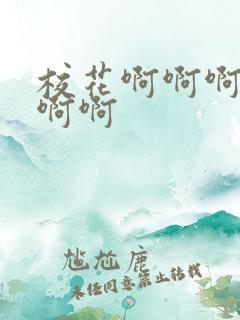 校花啊啊啊
啊啊
尴尬鹿
未经同意禁止转载